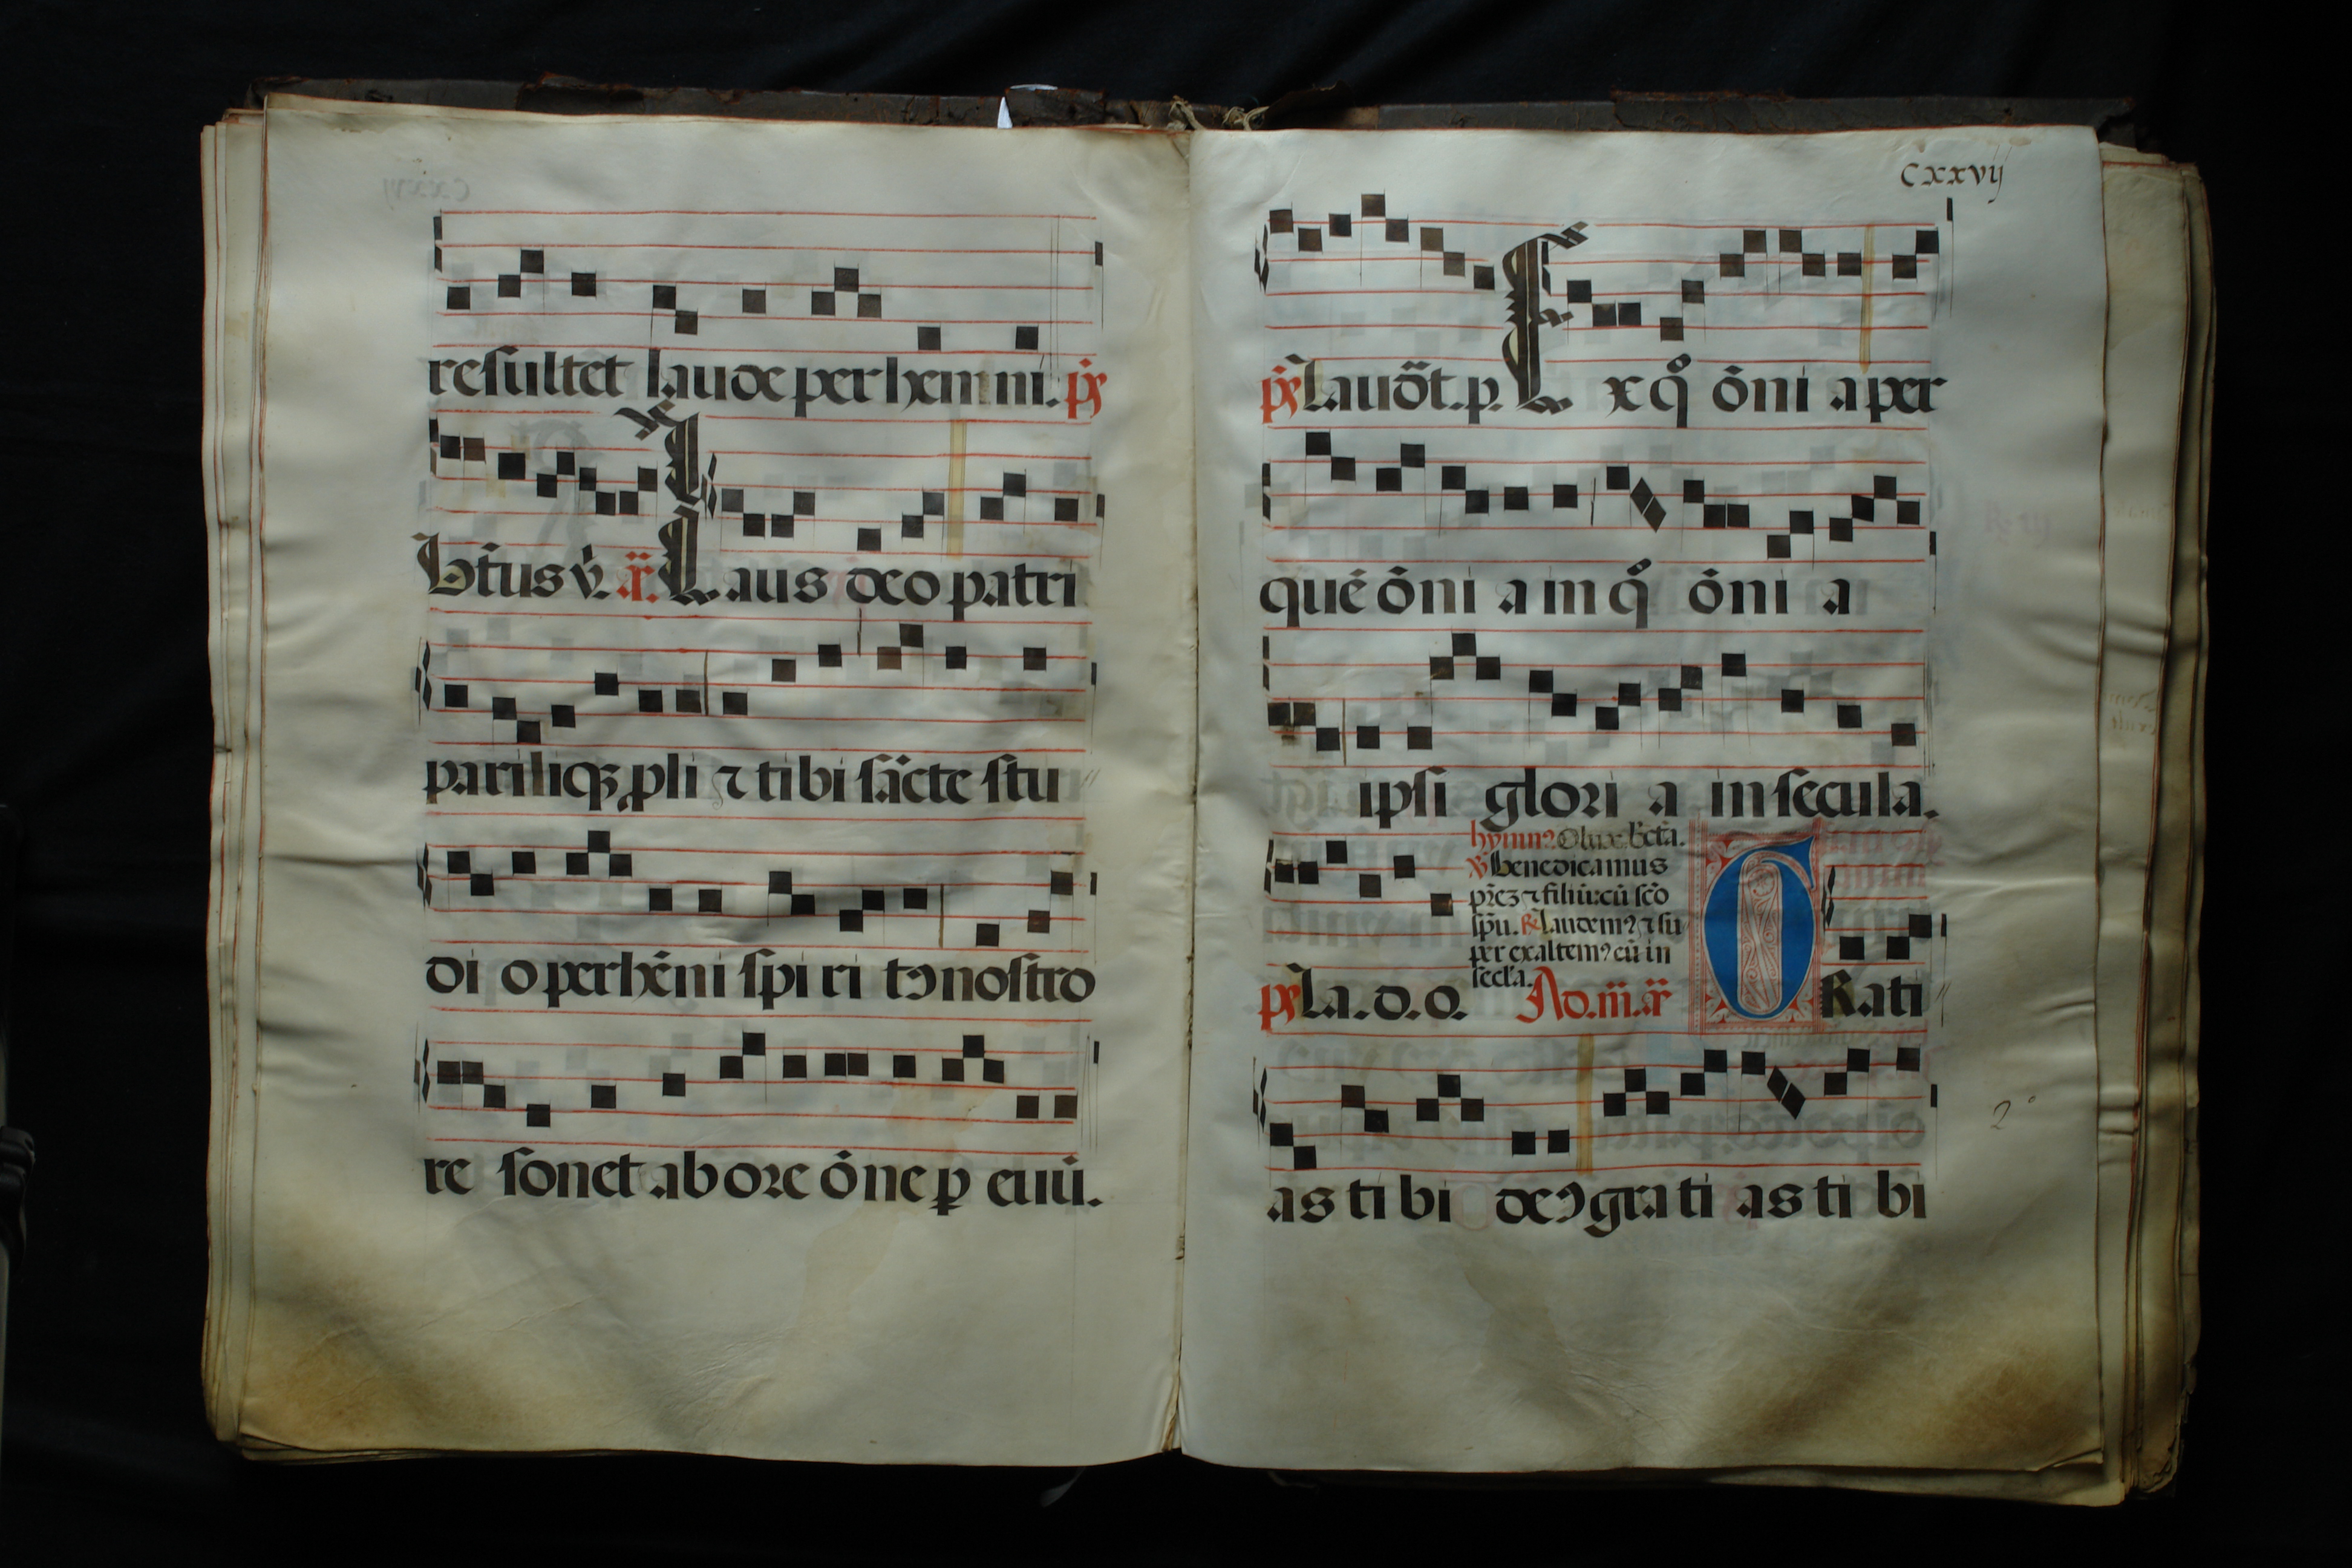 resultet laude perhenni. ps̄
Btūs v̄. a͞n. Laus deo patri
pariliqꝫ ꝓli ⁊ tibi sācte stu
di o perhēni spi ri tꝰ nostro
re sonet ab ore ōne ꝑ euū.
cxxvij
ps̄ Lauōt. p. Ex qͦ ōni a per
quē ōni a in qͦ ōni a
ipsi glori a in secula.
hymnꝰ. O lux bctā.
℣ benedicamus
prēꝫ ⁊ filiū: cū scō
spū. ℟ laudemꝰ ⁊ su
per exaltemꝰ eū in
secla.
ps̄ La. d. o. Ad. m̄. a͞n GRati
as ti bi deꝰ grati as ti bi
2º